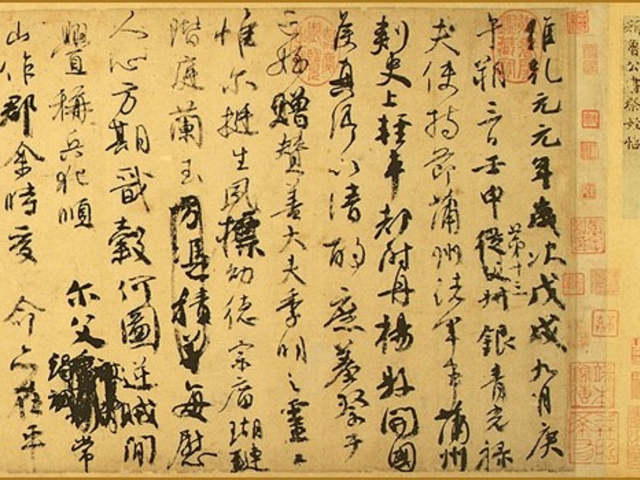 顏魯公書祭姪帖
維乾元元年歲次戊戌九月庚
午朔三日壬申第十三從父叔銀青光祿
夫使持節蒲州諸軍事蒲州
刺史上輕車都尉丹楊縣開國
侯真卿以清酌庶羞祭于
亡姪贈贊善大夫季明之靈曰
惟爾挺生夙標幼德宗廟瑚璉
階庭蘭玉方憑積善每慰
人心方期戩穀何圖逆賊閒
舋稱兵犯順爾父竭誠常
山作郡余時受命亦在平